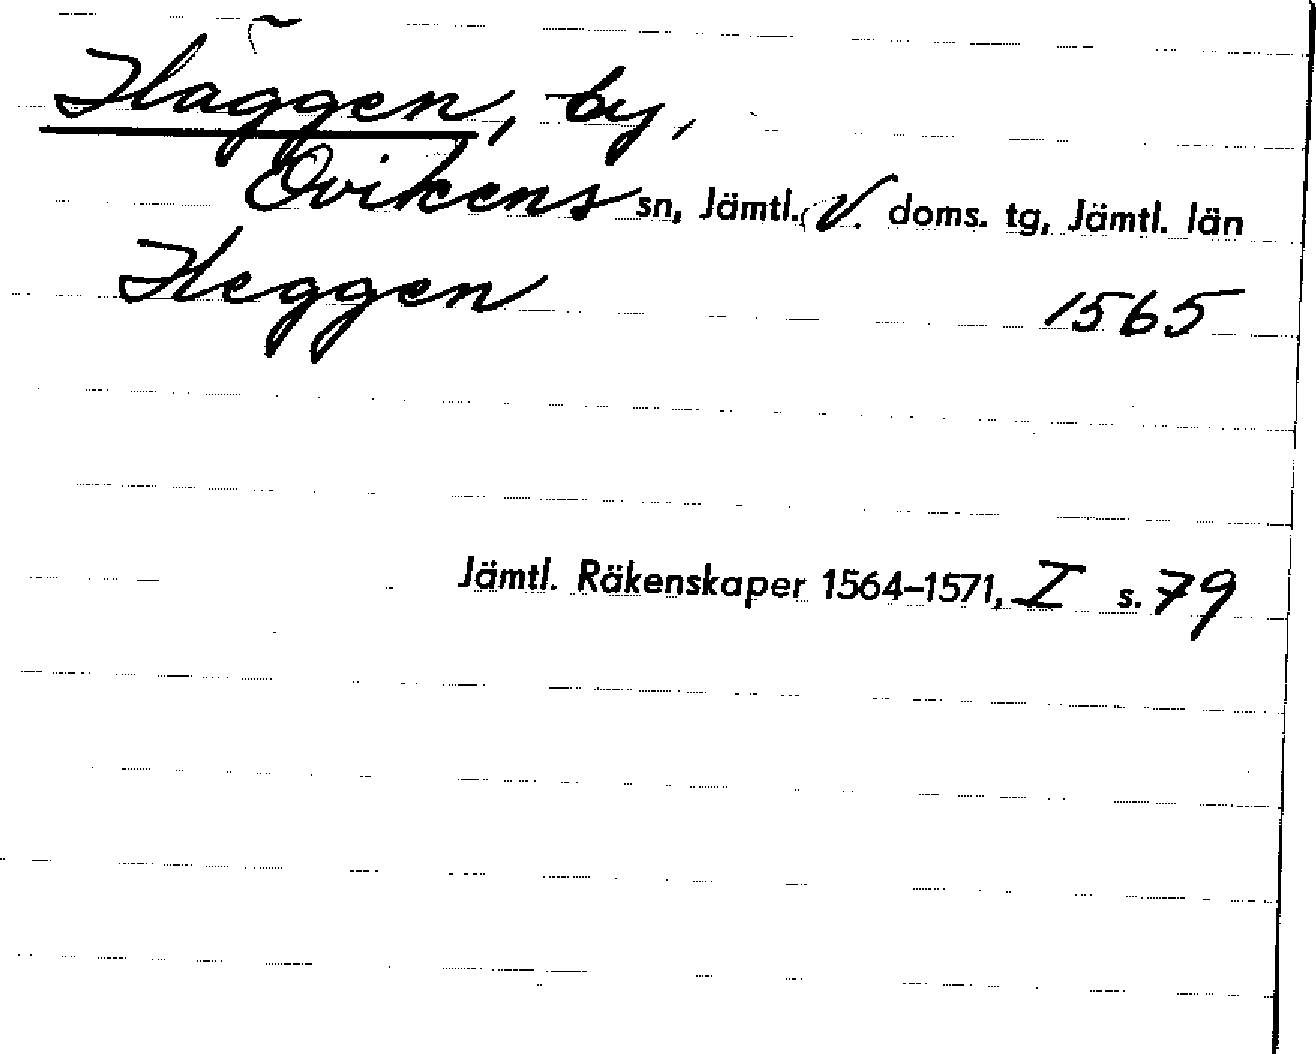 Häggen, by,
Ovikens sn, Jämtl. V. doms. tg, Jämtl. län
Heggen 1565
Jämtl. Räkenskaper 1564–1571, I s. 79